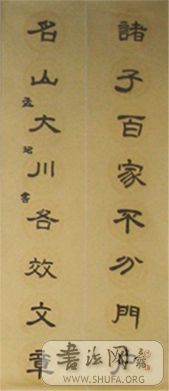 諸子百家不分門
名山大川各效文章
書法网
WWW.SHUFA.ORG